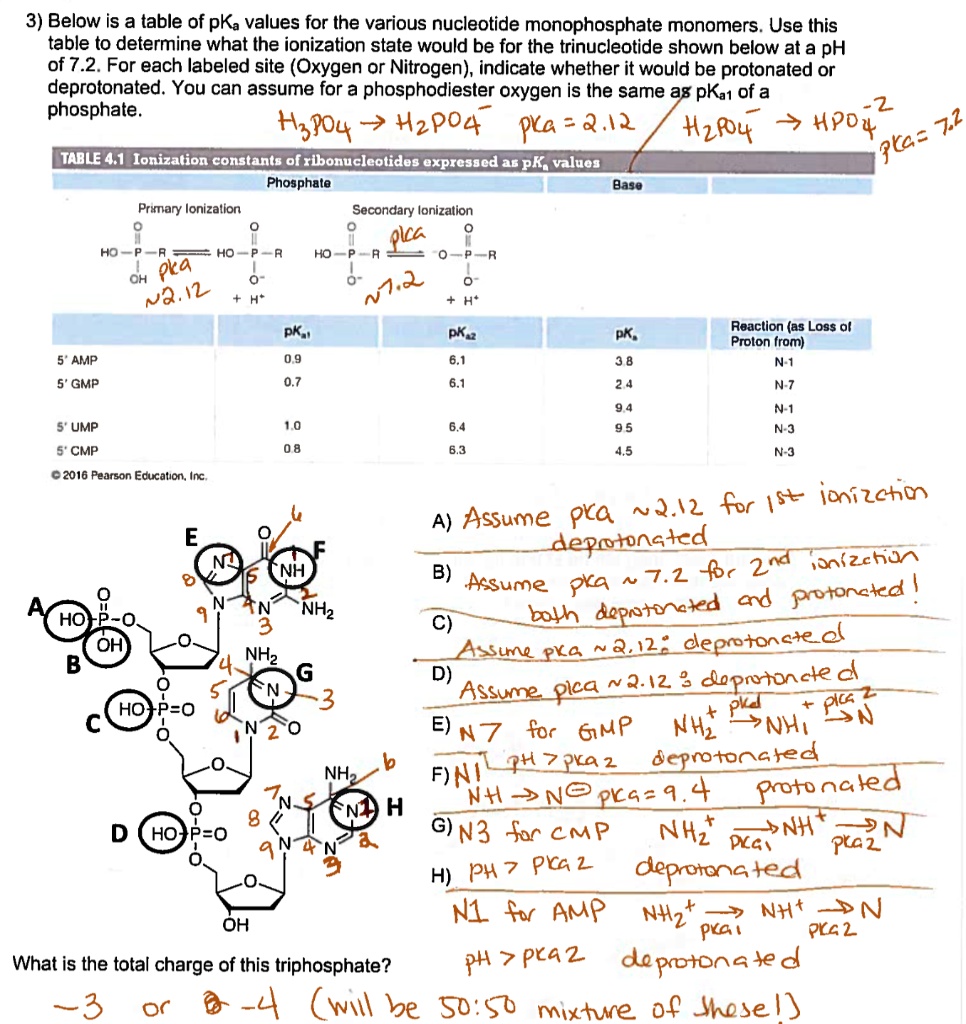 3) Below is a table of pKa values for the various nucleotide monophosphate monomers. Use this
table to determine what the ionization state would be for the trinucleotide shown below at a pH
of 7.2. For each labeled site (Oxygen or Nitrogen), indicate whether it would be protonated or
deprotonated. You can assume for a phosphodiester oxygen is the same as pKa1 of a
phosphate.
H3PO4 → H2PO4⁻ pKa = 2.12 H2PO4⁻ → HPO4⁻² pKa = 7.2
TABLE 4.1 Ionization constants of ribonucleotides expressed as pKa values
Phosphate Base
Primary Ionization Secondary Ionization
O O O O
HO–P–R HO–P–R HO–P–R ⁻O–P–R
pka plca
OH O⁻ O⁻ O⁻
~2.12 + H⁺ ~7.2 + H⁺
pKa1 pKa2 pKa Reaction (as Loss of
Proton from)
5' AMP 0.9 6.1 3.8 N-1
5' GMP 0.7 6.1 2.4 N-7
9.4 N-1
5' UMP 1.0 6.4 9.5 N-3
5' CMP 0.8 6.3 4.5 N-3
© 2016 Pearson Education, Inc.
6
E O F
N 7 5 NH 1
8 2
9 N 4 N NH2
3
A HO–P–O
O
OH
B
O
NH2
4 G
5 N 3
C HO–P=O
O
6
1 N 2 O
O
NH2 6
7 N 5 N 1 H
8
9 N 4 N 2
3
O
D HO–P=O
O
O
OH
A) Assume pKa ~2.12 for 1st ionization
deprotonated
B) Assume pka ~ 7.2 for 2nd ionization
both deprotonated and protonated!
C) Assume pka ~ 2.12; deprotonated
D) Assume pica ~ 2.12 & deprotonated
E) N7 for GMP NH2⁺ pka1 → NH1⁺ pka2 → N
pH > pka2 deprotonated
F) N1 NH → N⊖ pKa = 9.4 protonated
G) N3 for CMP NH2⁺ → pKa1 NH⁺ → pka2 N
H) pH > pka2 deprotonated
N1 for AMP NH2⁺ → pka1 NH⁺ → pka2 N
pH > pka2 deprotonated
What is the total charge of this triphosphate?
-3 or -4 (will be 50:50 mixture of these!)